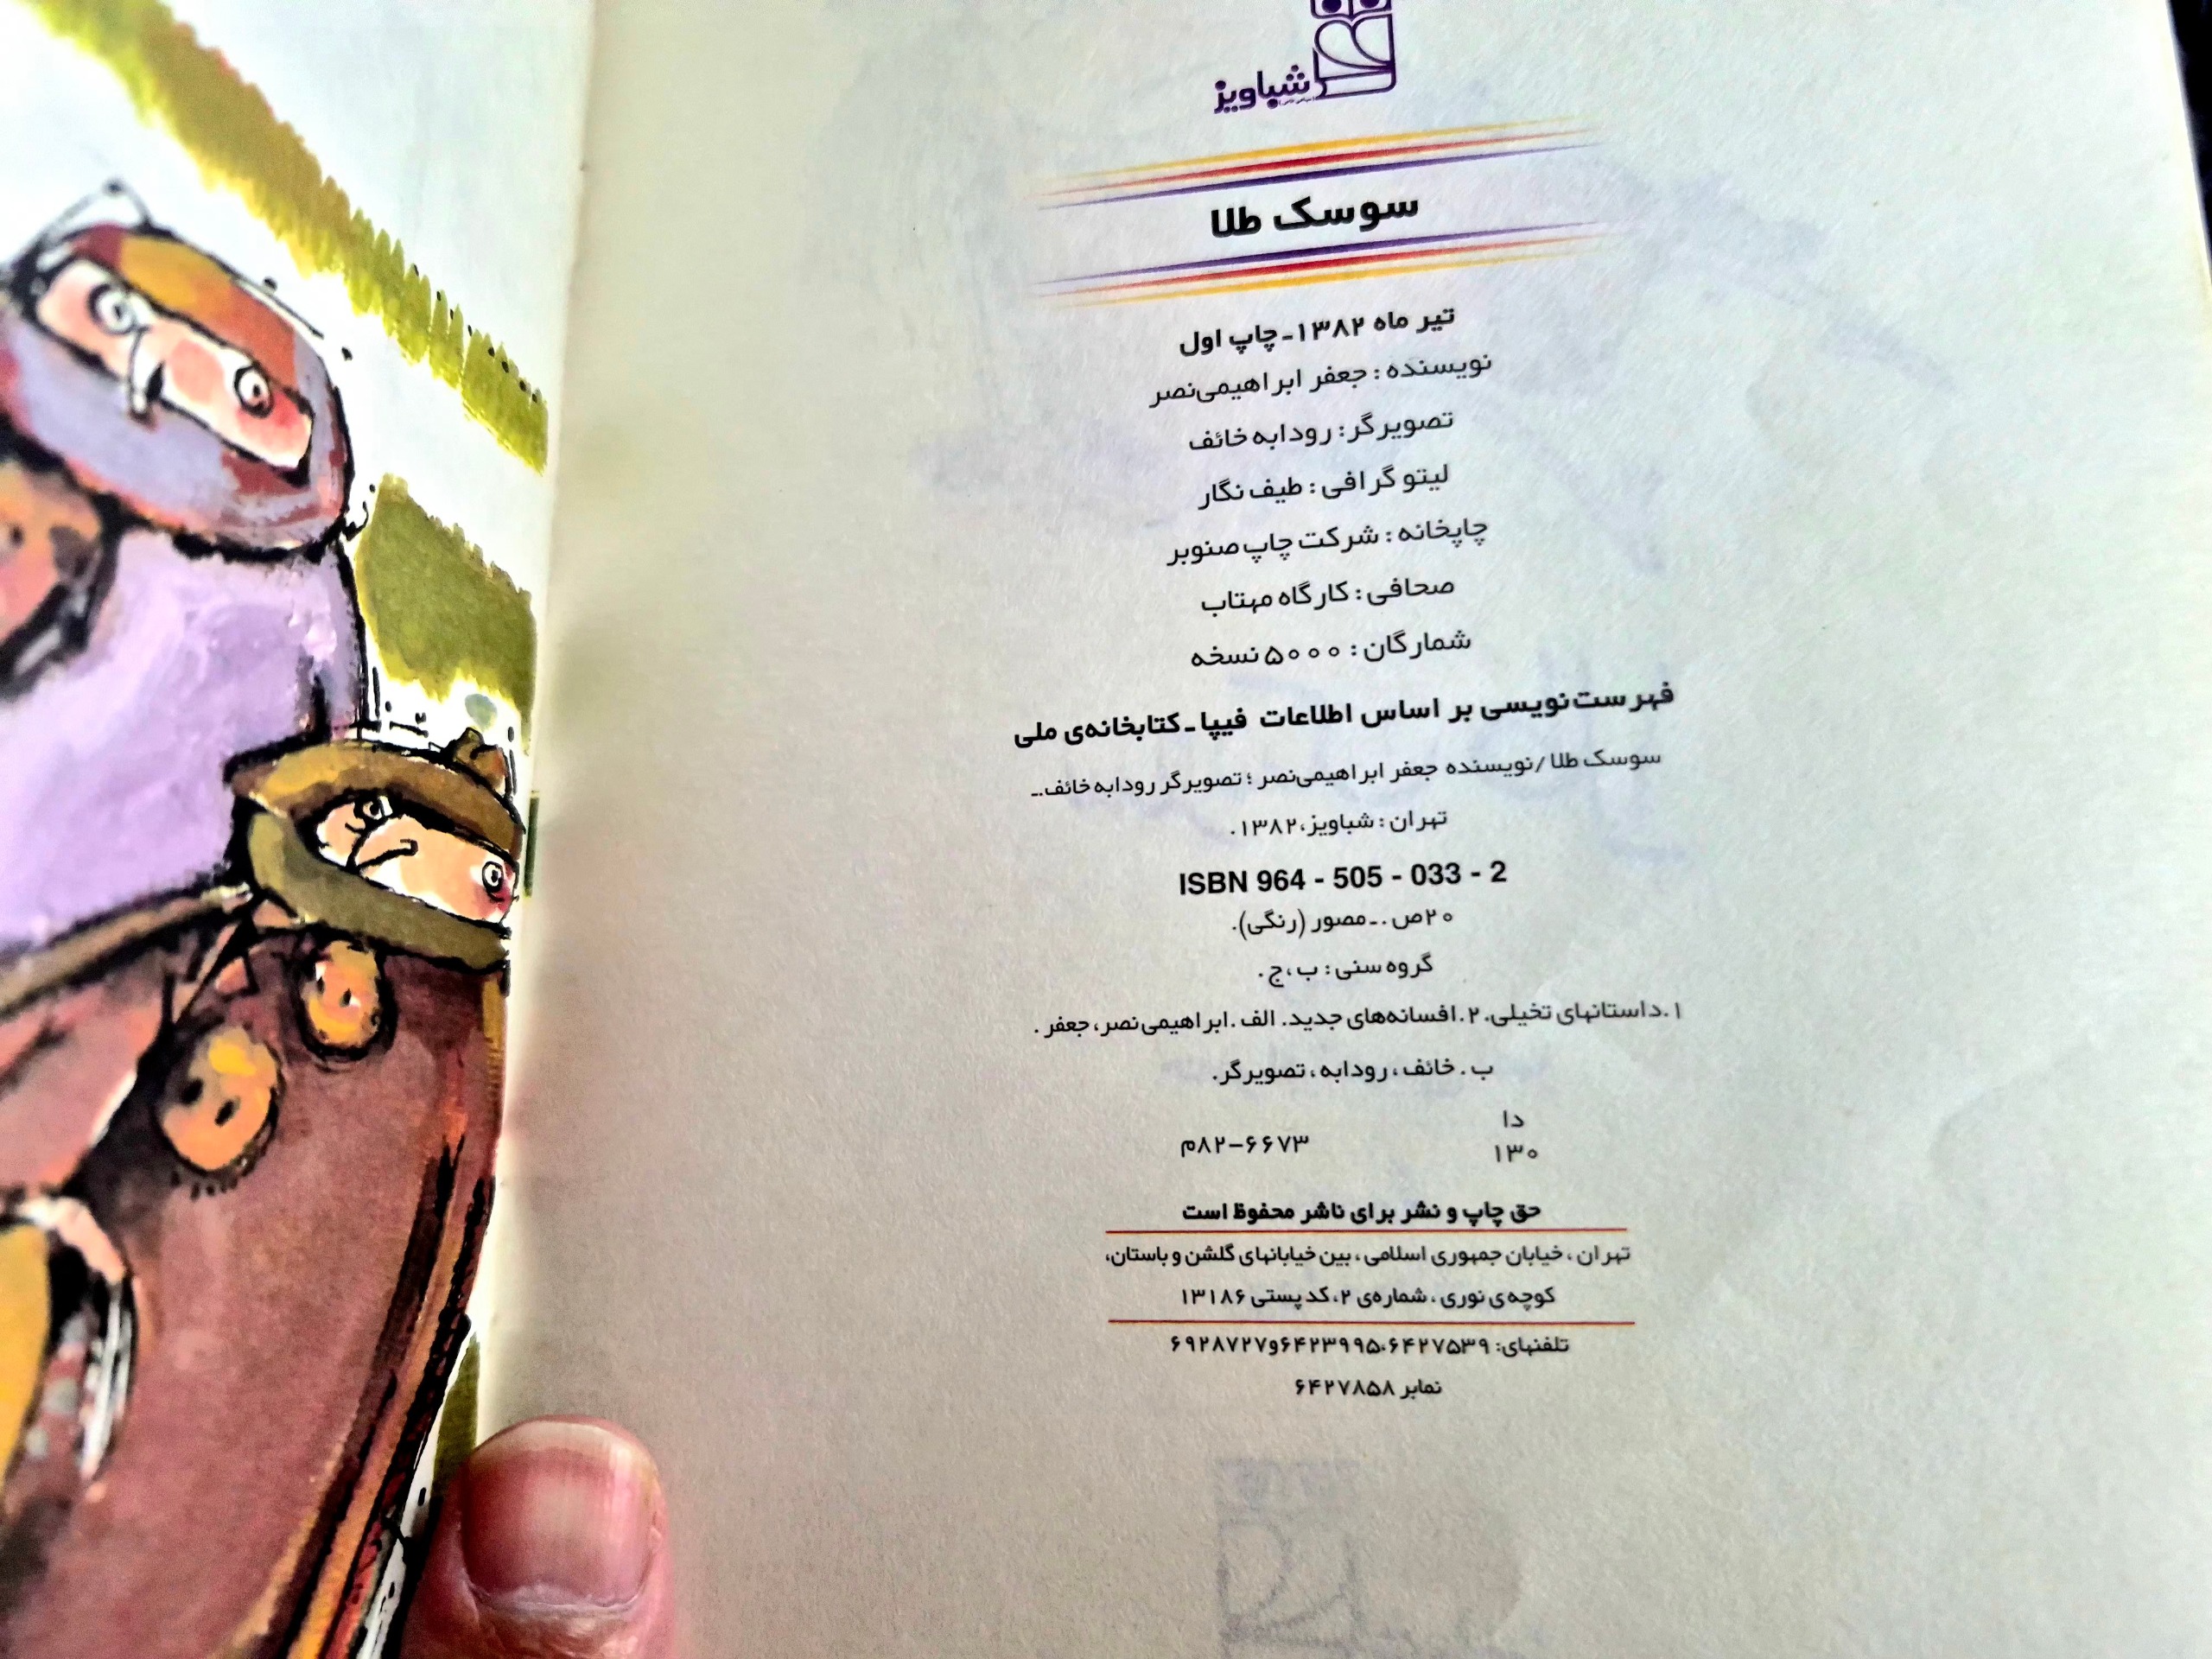 شباویز
سوسک طلا
تیر ماه ۱۳۸۲ـ چاپ اول
نویسنده : جعفر ابراهیمی‌نصر
تصویرگر: رودابه خائف
لیتوگرافی : طیف نگار
چاپخانه : شرکت چاپ صنوبر
صحافی : کارگاه مهتاب
شمارگان : ۵۰۰۰ نسخه
فهرست‌نویسی بر اساس اطلاعات فیپا ـ کتابخانه‌ی ملی
سوسک طلا /نویسنده جعفر ابراهیمی‌نصر ؛ تصویرگر رودابه خائف.ــ
تهران : شباویز، ۱۳۸۲.
ISBN 964 - 505 - 033 - 2
۲۰ص .ـ مصور (رنگی).
گروه سنی : ب ، ج .
۱.داستانهای تخیلی. ۲.افسانه‌های جدید. الف .ابراهیمی‌نصر، جعفر .
ب . خائف ، رودابه ، تصویرگر.
دا
۱۳۰
۶۶۷۳–۸۲م
حق چاپ و نشر برای ناشر محفوظ است
تهران ، خیابان جمهوری اسلامی ، بین خیابانهای گلشن و باستان،
کوچه‌ی نوری ، شماره‌ی ۲، کد پستی ۱۳۱۸۶
تلفنهای: ۶۴۲۷۵۳۹،۶۴۲۳۹۹۵و۶۹۲۸۷۲۷
نمابر ۶۴۲۷۸۵۸